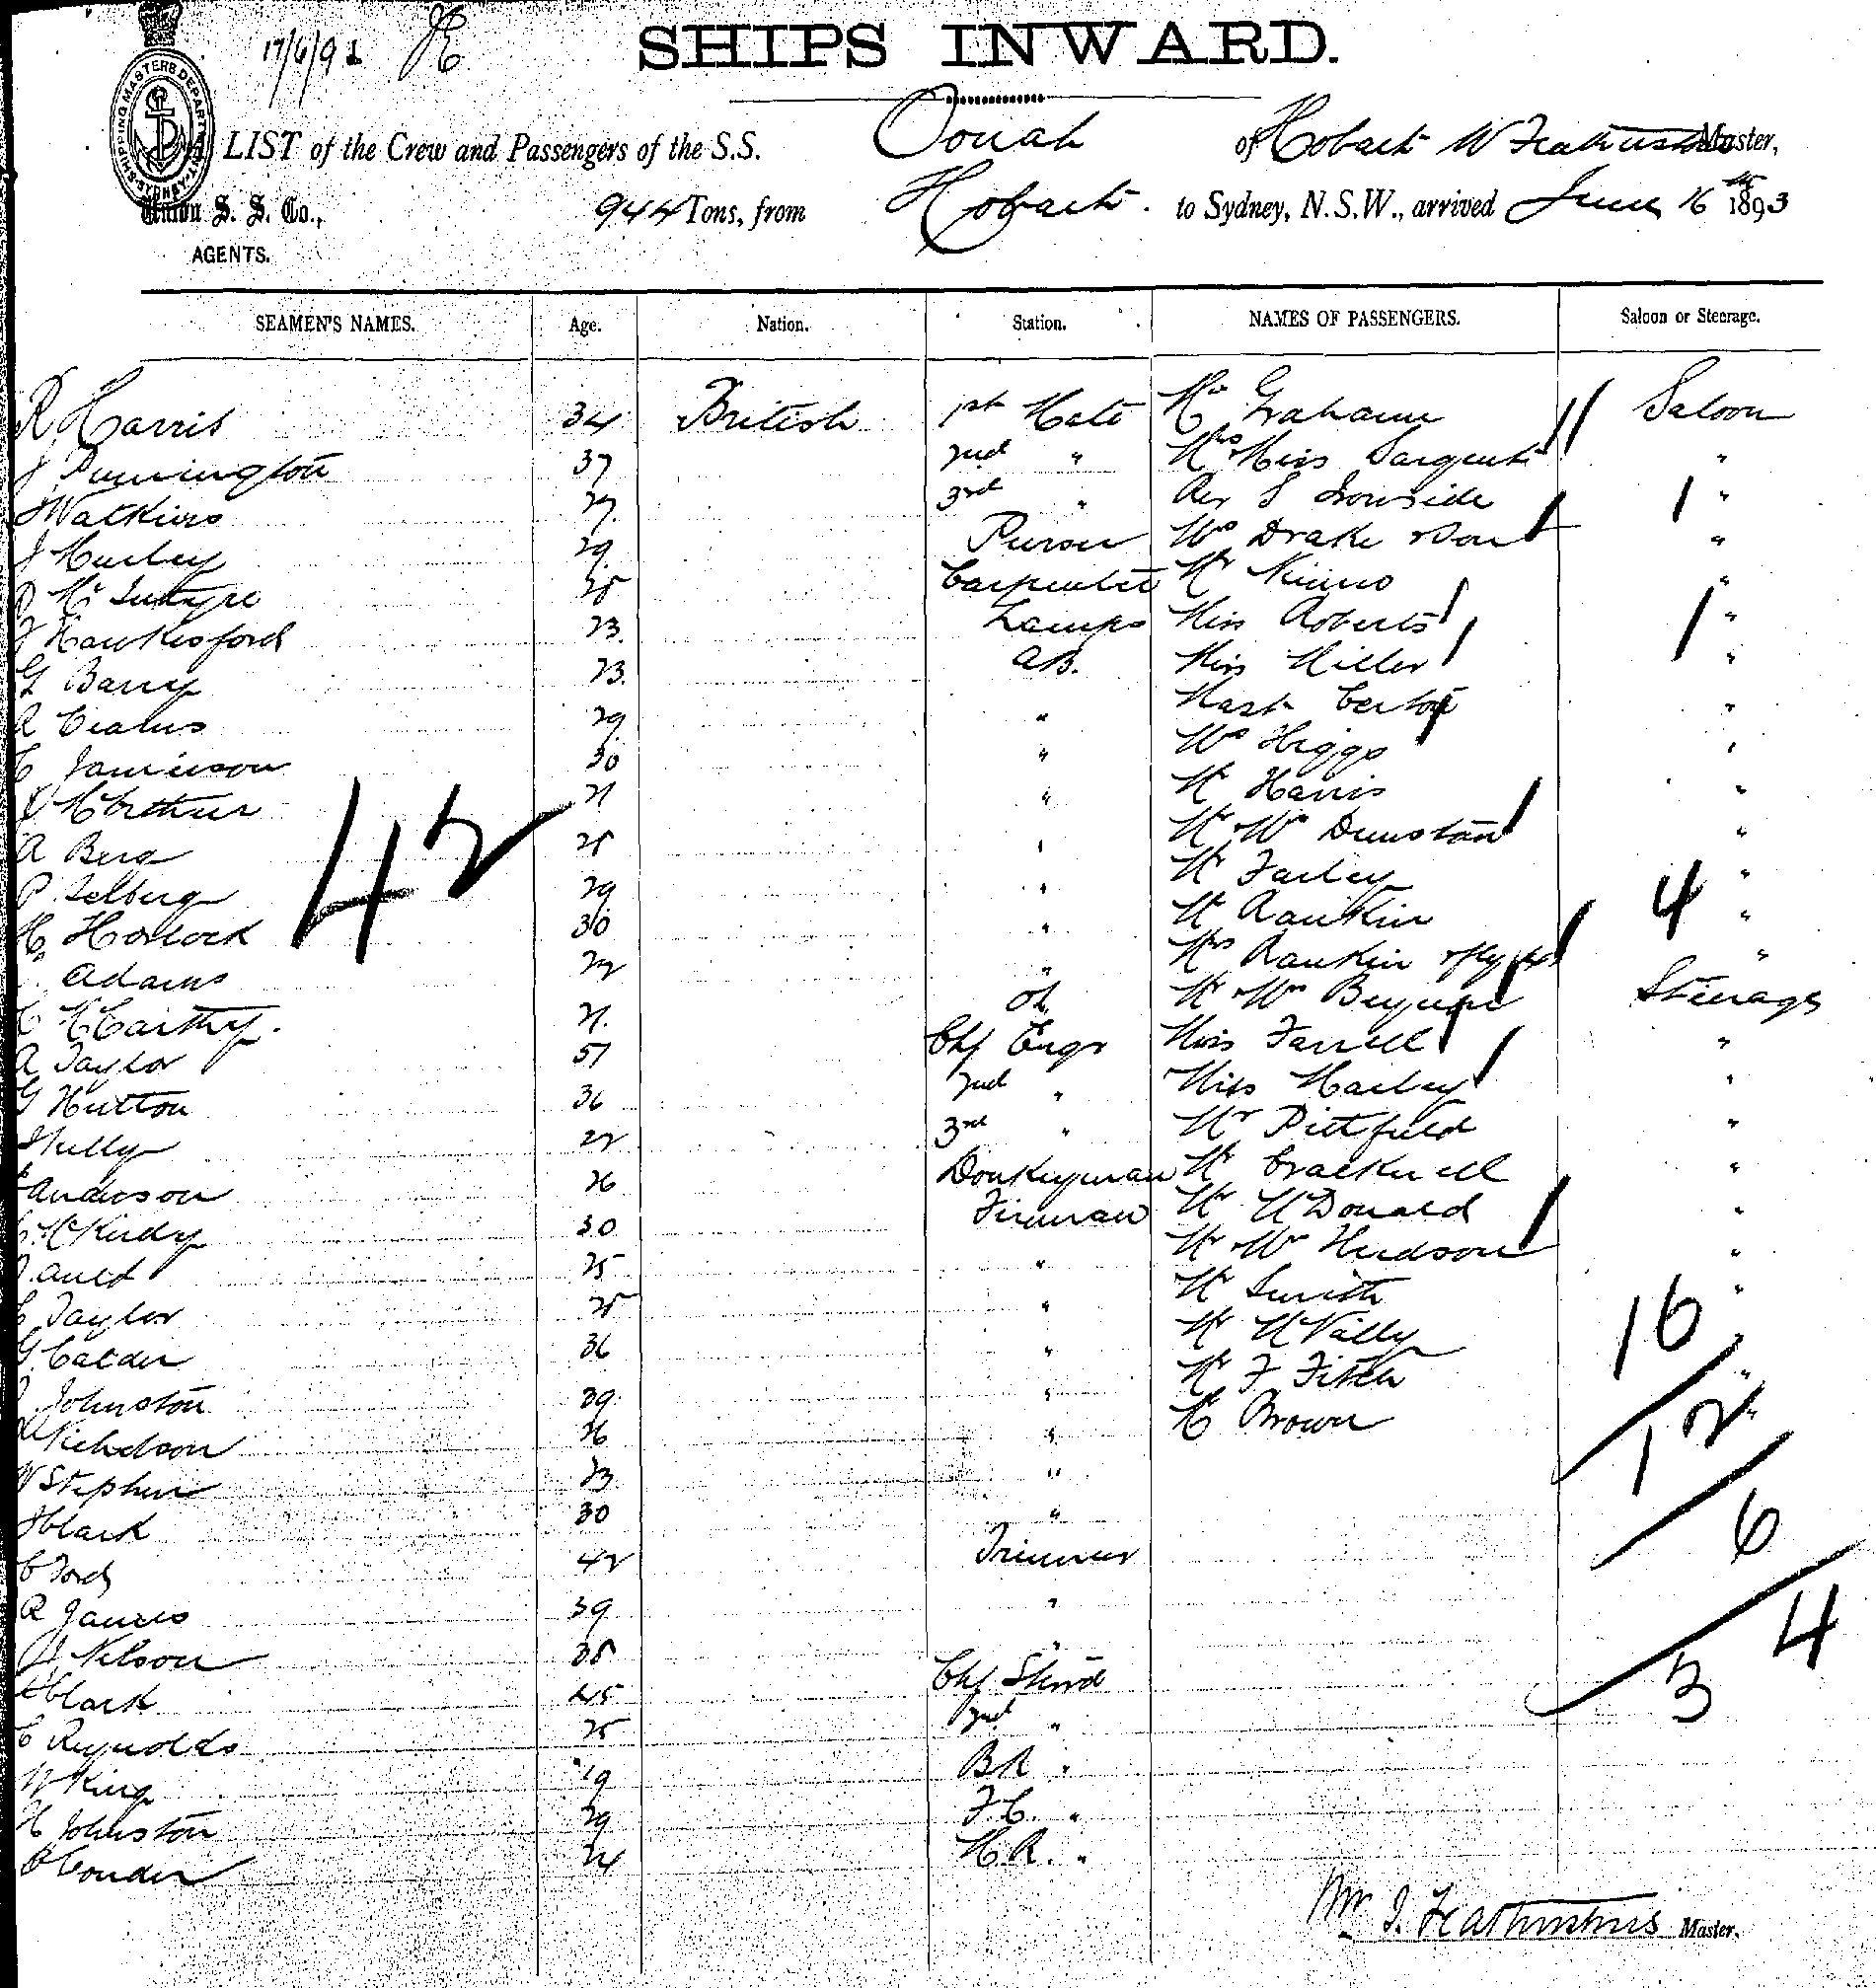 17/6/93
SHIPS INWARD.
SHIPPING MASTERS DEPARTMENT SYDNEY
LIST of the Crew and Passengers of the S.S. Oonah of Hobart W Featherstone Master,
Union S. S. Co., AGENTS. 944 Tons, from Hobart to Sydney, N.S.W., arrived June 16th 1893
SEAMEN'S NAMES. Age. Nation. Station. NAMES OF PASSENGERS. Saloon or Steerage.
R Harris 34 British 1st Mate Mr Grahame Saloon
J Pennington 37 2nd " Mrs Miss Sargent "
Watkins 27 3rd " Rev S Ironside 1 "
J Hurley 29 Purser Mrs Drake & Son "
Mc Intyre 25 Carpenter Mr Nimmo "
Hawkesford 23 Lamps Miss Roberts 1 "
G Barry 23 AB. Miss Miller "
R 29 " Mast "
C Jamieson 30 " Mrs Higgs "
McArthur 21 " Mr Harris "
42
A Berg 25 " Mr Mrs Dunstan "
P Selberg 29 " Mr Farley "
H Horlock 30 " Mr Rankin 4 "
Adams 22 " Mrs Rankin "
C McCarthy 21 OS Mr Mrs Steerage
A Taylor 51 Chf Engr Miss Farrell "
G Hutton 36 2nd " Miss Harley "
Kelly 22 3rd " Mr Pittfield "
Anderson 26 Donkeyman Mr Cracknell "
McKirdy 30 Fireman Mr McDonald "
Auld 25 " Mr Mrs Hudson "
C Taylor 25 " Mr Smith "
G Calder 36 " Mr McNally 16 "
Johnston 39 " Mr F Fitch "
Nicholson 26 " C Brown 12 "
W Stephen 23 "
Clark 30 " 6
C Ford 42 Trimmer
R James 39 " 4
Nelson 35 "
Clark 45 Chf Stwd 3
C Reynolds 25 2nd "
W King 19 BR "
H Johnston 29 F.C. "
Conder 24 M.R. "
Wm J. Featherstone Master.